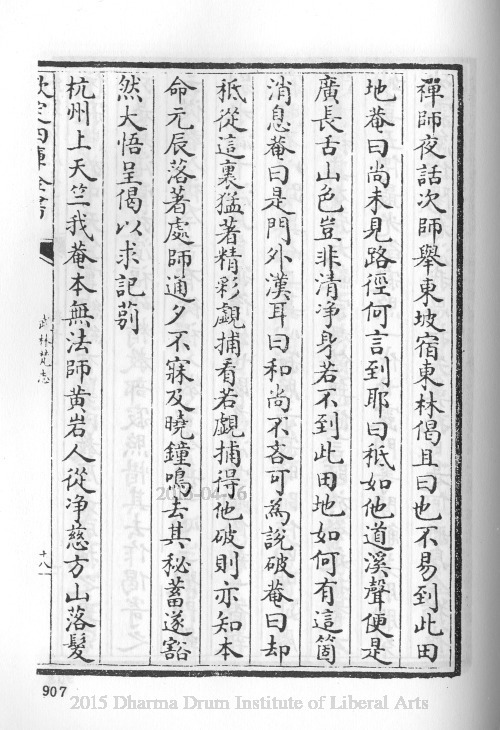 禪師夜話次師舉東坡宿東林偈且曰也不易到此田
地菴曰尚未見路徑何言到耶曰秪如他道溪聲便是
廣長舌山色豈非清净身若不到此田地如何有這箇
消息菴曰是門外漢耳曰和尚不吝可為說破菴曰却
秪從這裏猛著精彩覷捕看若覷捕得他破則亦知本
命元辰落著處師通夕不寐及曉鐘鳴去其秘蓄遂豁
然大悟呈偈以求記莂
杭州上天竺我菴本無法師黄岩人從净慈方山落髮
欽定四庫全書
武林梵志
十八
907
2015-04-16
2015 Dharma Drum Institute of Liberal Arts